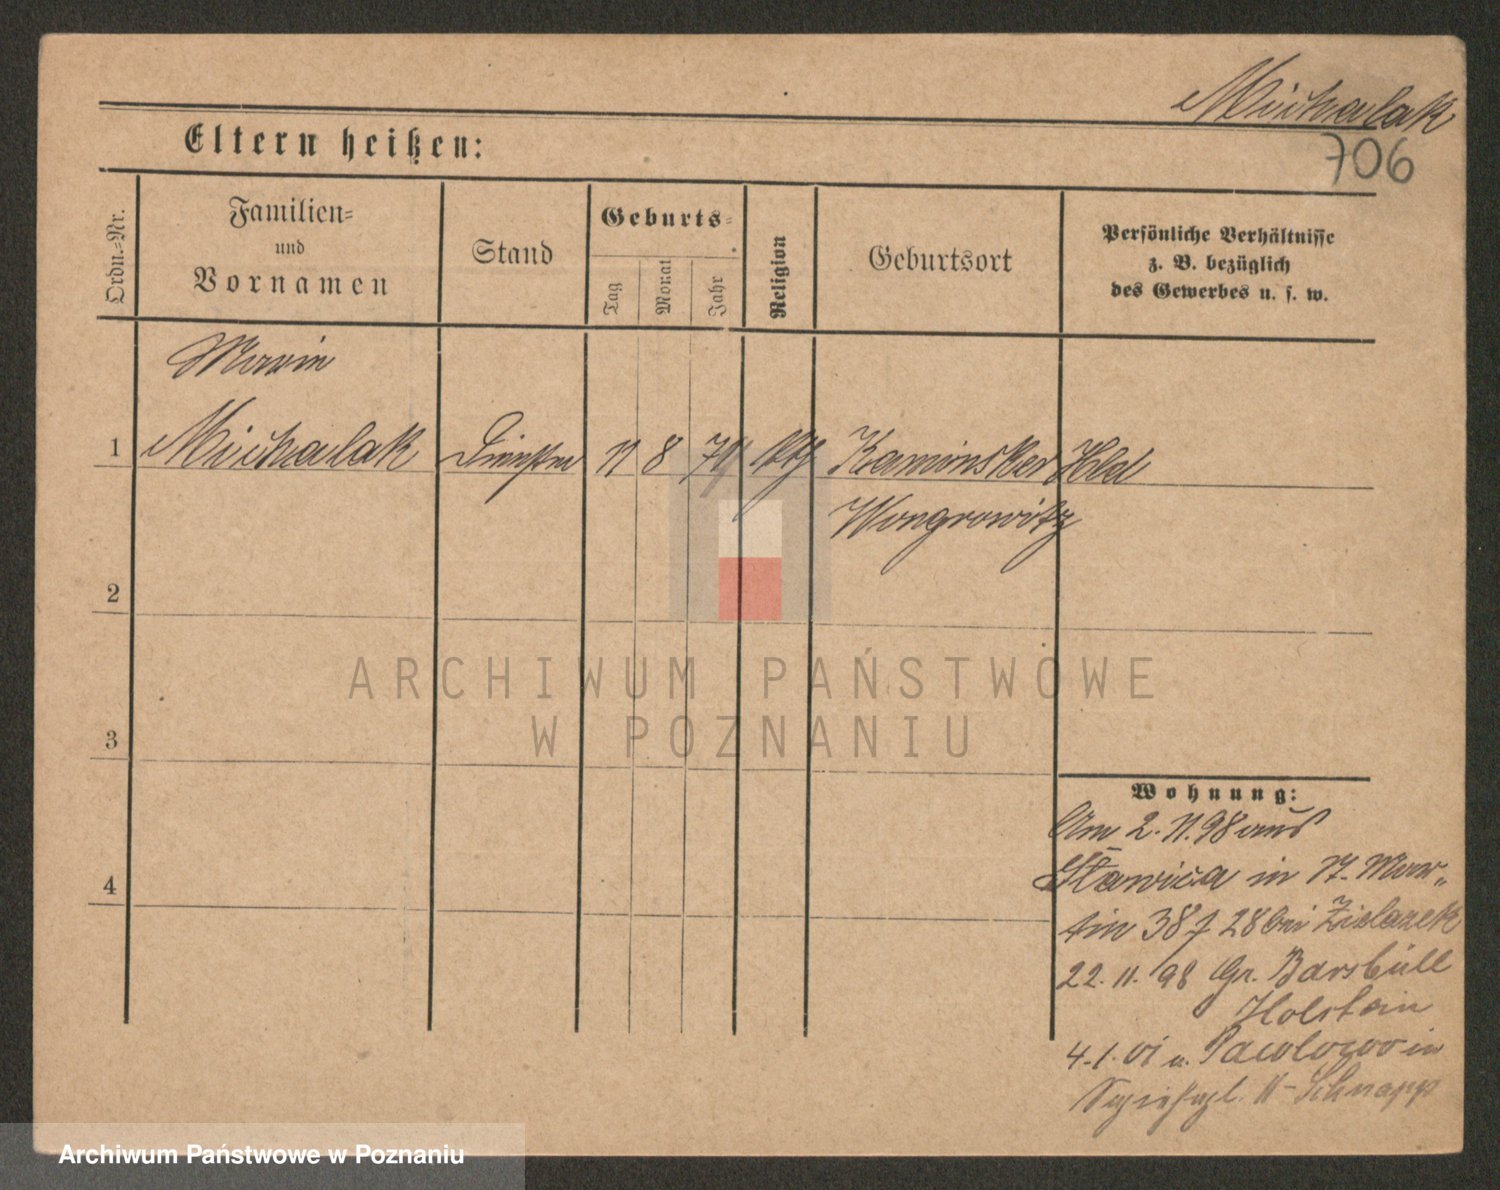 Michalak
706
Eltern heißen:
Ordn.=Nr.
Familien=
und
Vornamen
Stand
Geburts=
Tag
Monat
Jahr
Religion
Geburtsort
Persönliche Verhältnisse
z. B. bezüglich
des Gewerbes u. s. w.
Marie
1 Michalak 11 8 Kaminsker Hld
Wongrowitz
2
3
4
Wohnung:
Am 2. 11. 98 aus
in 17. Mar„
tin 38 28 bei Zielazek
22. 11. 98 Gr. Barsbüll
Holstein
4. 1. 01 a. in
11 Schnapp
ARCHIWUM PAŃSTWOWE
W POZNANIU
Archiwum Państwowe w Poznaniu